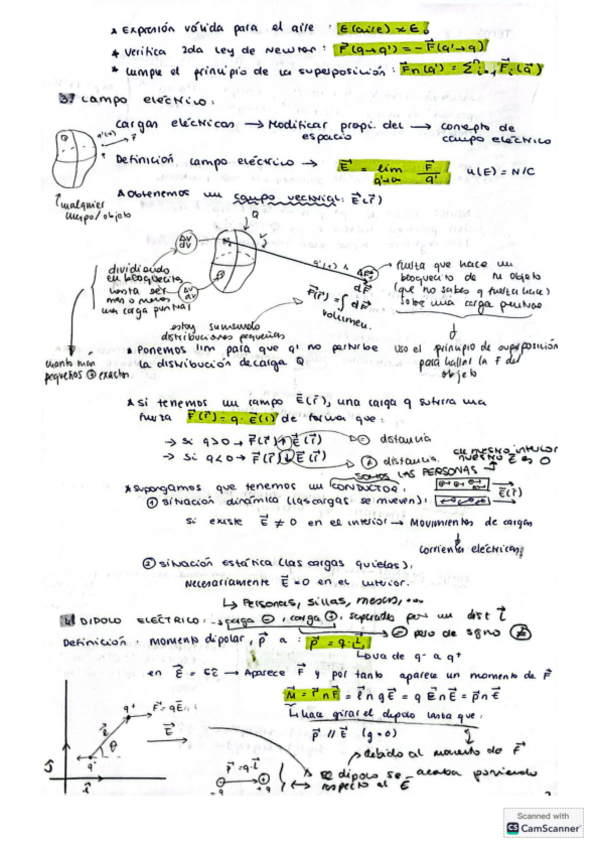 * Expresión válida para el aire: ε(aire) ≈ ε₀
* Verifica 2da Ley de Newton: F⃗(q→q') = -F⃗(q'→q)
* Cumple el principio de la superposición: F⃗n(q') = Σⁿᵢ₌₁ F⃗ᵢ(q')
3. campo eléctrico:
cargas eléctricas → Modificar propi. del espacio → concepto de campo eléctrico
Definición campo eléctrico → E⃗ = lim q'→0 F⃗/q' u(E) = N/C
cualquier cuerpo/objeto
* Obtenemos un campo vectorial: E⃗(r⃗)
Q
dividiendo en bloquecitos hasta ser mas o menos una carga puntual
ΔV dV
ΔV dV
q'(+)
dF⃗
F⃗(r⃗) = ∫ dF⃗
volumen.
fuerza que hace un bloquecito de tu objeto (que no sabes q fuerza hace) sobre una carga puntual
estoy sumando distribuciones pequeñas
cuanto más pequeños ⊕ exacto.
* Ponemos lim para que q' no perturbe la distribución de carga Q
uso el principio de superposición para hallar la F del objeto
* Si tenemos un campo E⃗(r⃗), una carga q sufrirá una fuerza F⃗(r⃗) = q·E⃗(r⃗) de forma que:
→ si q>0 → F⃗(r⃗) ↑ E⃗(r⃗) ⊖ distancia
→ si q<0 → F⃗(r⃗) ↓ E⃗(r⃗) distancia.
SOMOS LAS PERSONAS
* Supongamos que tenemos un CONDUCTOR:
① situación dinámica (las cargas se mueven): E⃗(r⃗)
si existe E⃗ ≠ 0 en el interior → Movimientos de cargas
corrientes eléctricas
② situación estática (las cargas quietas).
Necesariamente E⃗ = 0 en el interior.
↳ Personas, sillas, mesas, ...
4. DIPOLO ELECTRICO: → carga ⊖, carga ⊕, separadas por un dist l⃗
Definición: momento dipolar, p⃗ a: p⃗ = q·l⃗ pero de signo ≠
↳ va de q- a q+
en E⃗ = cte → Aparece F⃗ y por tanto aparece un momento de F⃗
M⃗ = r⃗ ∧ F⃗ = l⃗ ∧ qE⃗ = q l⃗ ∧ E⃗ = p⃗ ∧ E⃗
↳ hace girar el dipolo hasta que:
p⃗ // E⃗ (θ=0)
debido al momento de F⃗
q+ F⃗ = qE⃗
l⃗ θ E⃗
q-
p⃗ = q·l⃗
-q +q
se dipolo se acaba poniendo
respecto al E⃗
Scanned with
CS CamScanner